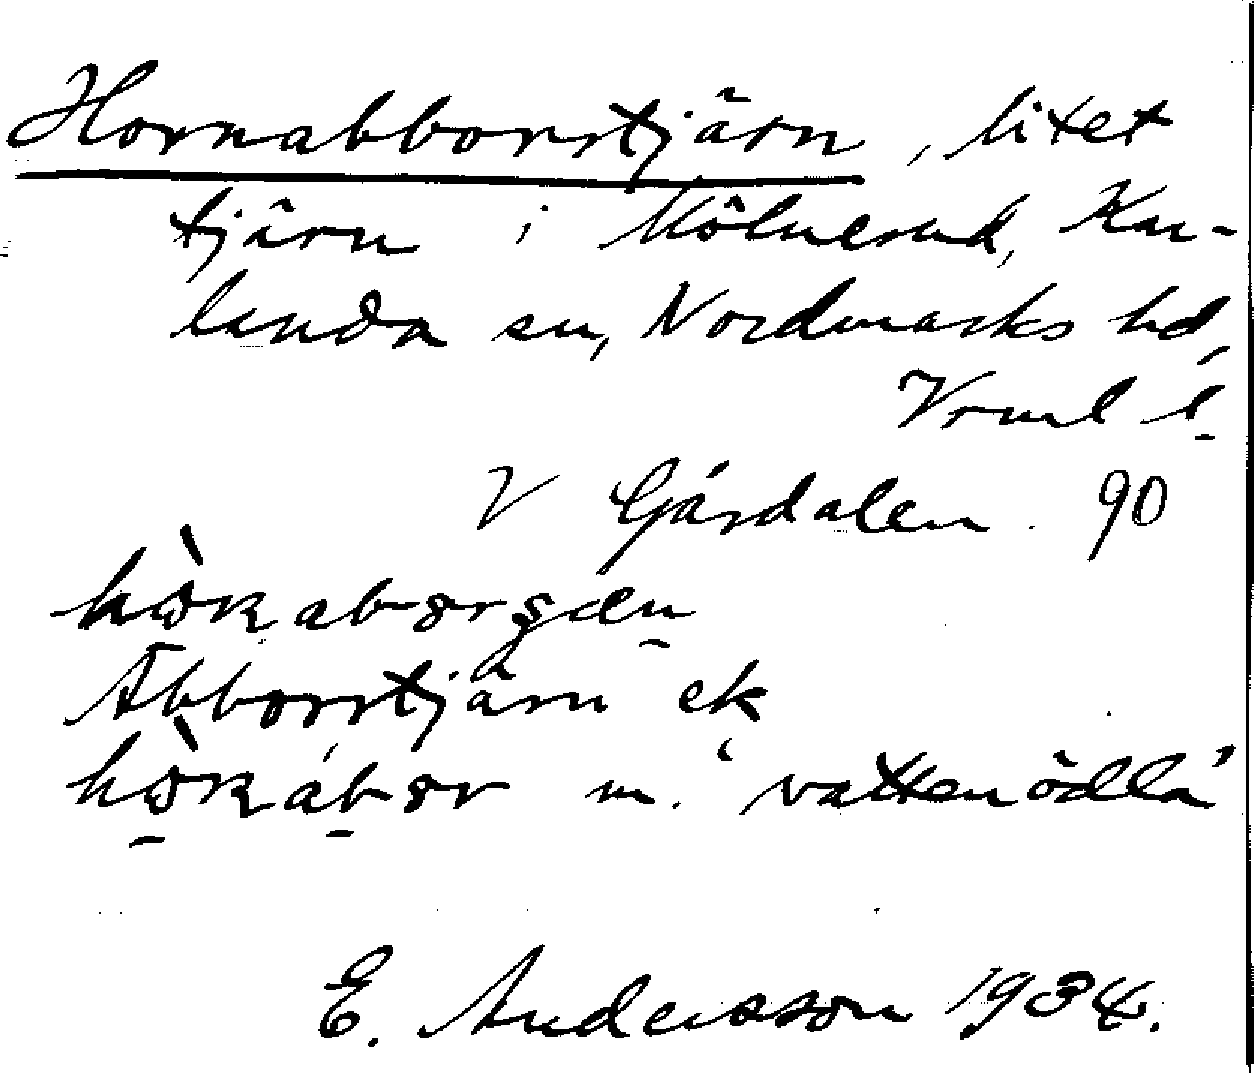 Hornabborrtjärn, litet
tjärn i Mölnerud, Kar-
landa sn, Nordmarks hd,
Vrml l.
V Gårdalen. 90
Abborrtjärn ek
m. "vattenödla"
E. Andersson 1934.